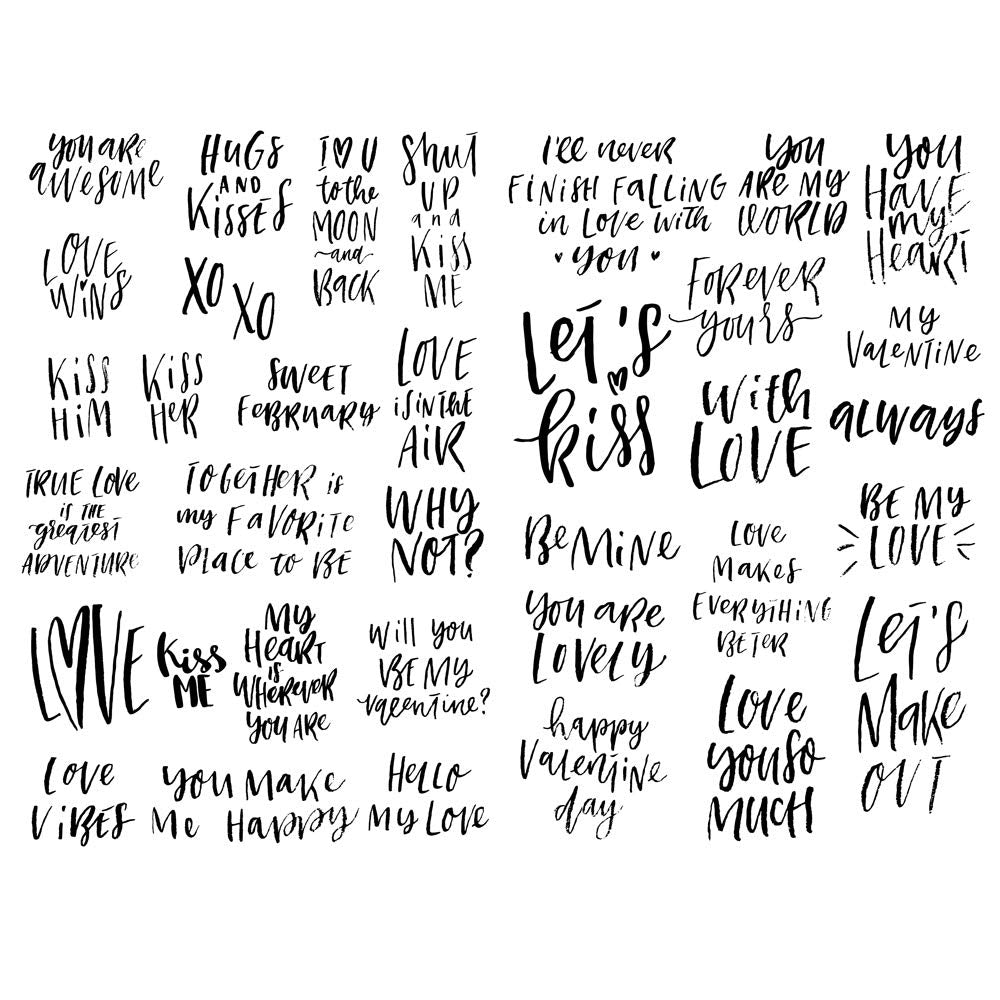 you are
awesome
HUGS
AND
KISSES
I ♥ U
to the
MOON
~and~
BACK
Shut
UP
and
KISS
ME
LOVE
WINS
XO
XO
KISS
HIM
KISS
HER
SWEET
FEBRUARY
LOVE
is in the
AiR
TRUE LOVE
is THE
greatest
ADVENTURE
TOGETHER is
my FAVORITE
Place to BE
WHY
NOT?
LOVE
Kiss
ME
MY
HEART
is
WHEREVER
YOU ARE
Will you
BE MY
valentine?
Love
ViBES
You Make
Me Happy
Hello
My Love
I'll never
FINISH FALLING
in Love with
you
You
ARE MY
WORLD
You
HAVE
my
HeaRT
Forever
yours
MY
VALENTINE
Let's
kiss
With
LOVE
always
Be Mine
Love
Makes
EVERYTHING
BETER
BE MY
LOVE
You are
Lovely
Let's
Make
OUT
happy
Valentine
day
Love
you so
MUCH